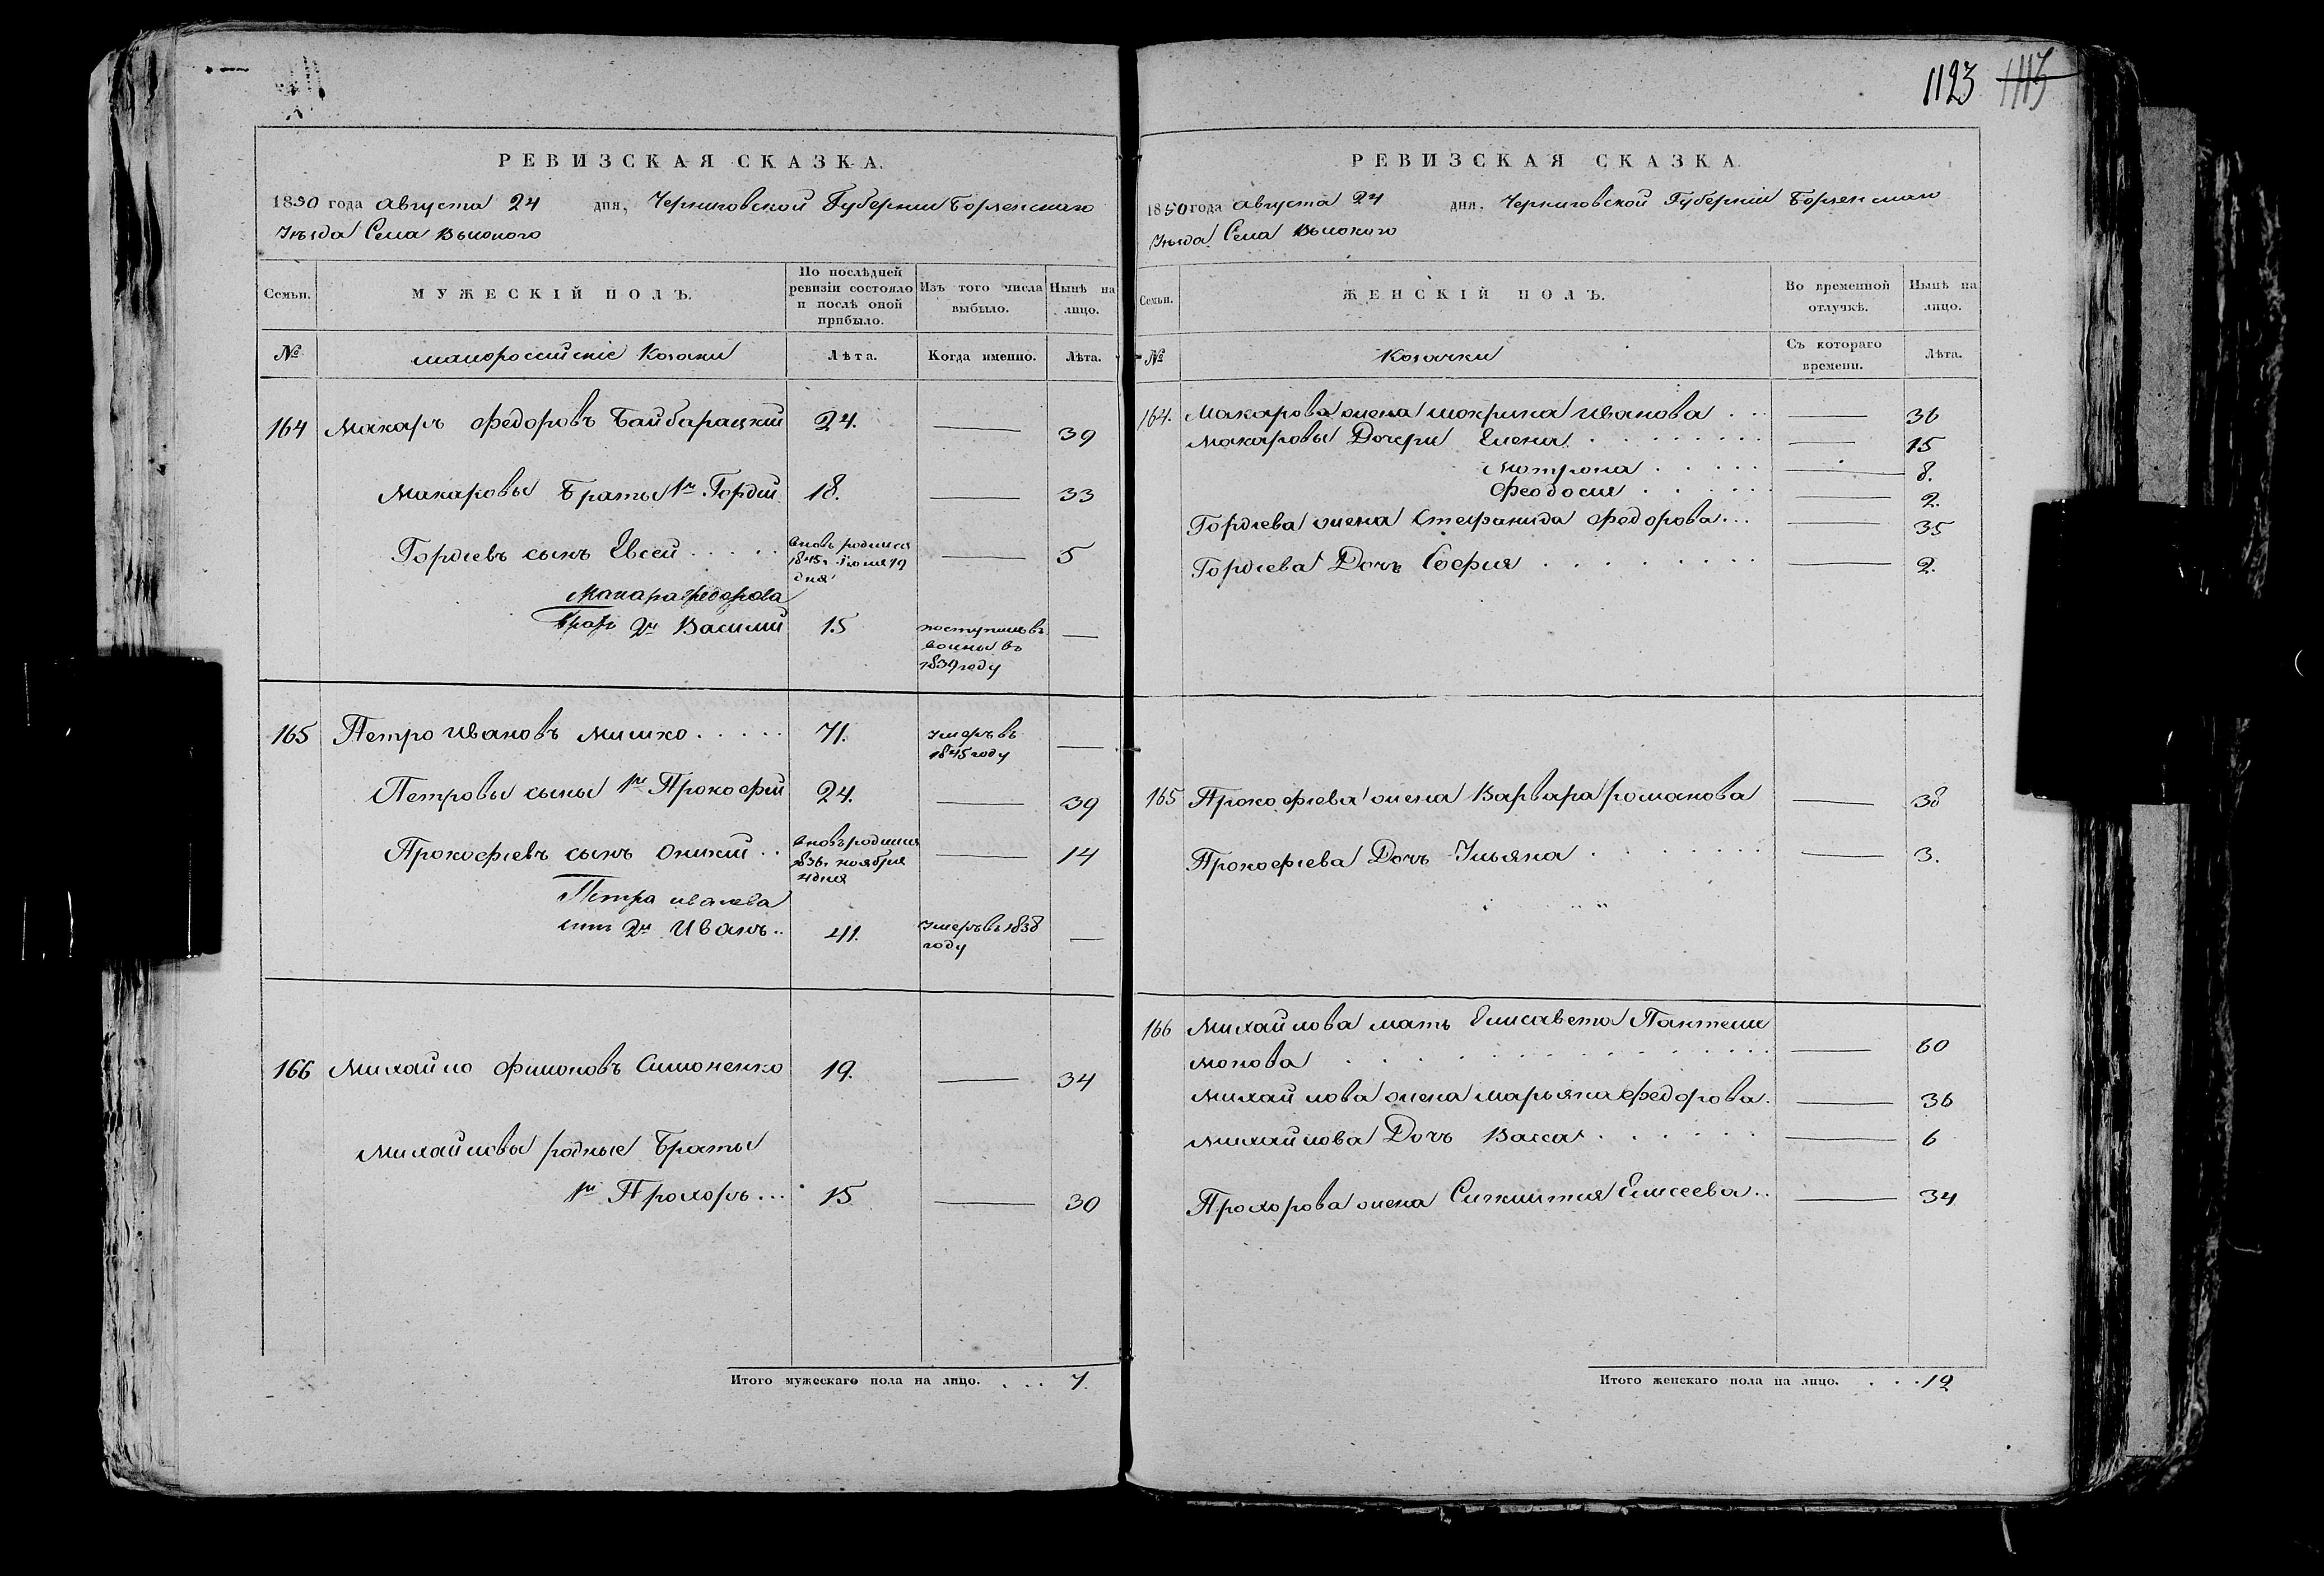 1123 1113
РЕВИЗСКАЯ СКАЗКА.
1850 года августа 24 дня, Черниговской Губернии Борзенскаго
Уѣзда Села Высокого
Семьи.
МУЖЕСКІЙ ПОЛЪ.
По послѣдней ревизіи состояло и послѣ оной прибыло.
Изъ того числа выбыло.
Нынѣ на лицо.
№
малороссійскіе Козаки
Лѣта.
Когда именно.
Лѣта.
164 Макаръ Федоровъ Байбарацкій 24. — 39
Макаровы Браты 1й Гордѣй 18. — 33
Гордѣевъ сынъ Евсей . . . . . вновь родился 1845г Іюня 19 дня — 5
Макара Федорова
братъ 2й Василий 15 поступилъ въ воины въ 1839 году —
165 Петро Ивановъ Мишко . . . . . 71. Умеръ въ 1845 году —
Петровы сыны 1й Прокофій 24. — 39
Прокофіевъ сынъ Оникій . . вновь родился 1836г ноября 4 дня — 14
Петра Иванова
сынъ 2й Иванъ.. 41. Умеръ въ 1838 году —
166 Михайло Филоновъ Симоненко 19. — 34
Михайловы родные Браты
1й Прохоръ... 15 — 30
Итого мужескаго пола на лицо. . . . 7.
РЕВИЗСКАЯ СКАЗКА.
1850 года августа 24 дня, Черниговской Губерніи Борзенскаго
Уѣзда Села Высокого
Семьи.
ЖЕНСКІЙ ПОЛЪ.
Во временной отлучкѣ.
Нынѣ на лицо.
№
Козачки
Съ котораго времени.
Лѣта.
164. Макарова жена Мокрина Иванова . . . — 36
Макаровы Дочери Елена . . . . . . . — 15
Мотрона . . . . . — 8.
Феодосия . . . . . — 2.
Гордѣева жена Стефанида Федорова... — 35
Гордѣева Дочь София . . . . . . . . — 2.
165 Прокофіева жена Варвара Романова — 38
Прокофіева Дочь Ульяна . . . . . . . — 3.
166 Михайлова мать Елисавета Пантели
монова . . . . . . . . . . . . — 60
Михайлова жена Марьяна Федорова. — 36
Михайлова Дочь Васса . . . . . . — 6
Прохорова жена Синклития Елисеева.. — 34
Итого женскаго пола на лицо. . . . 12